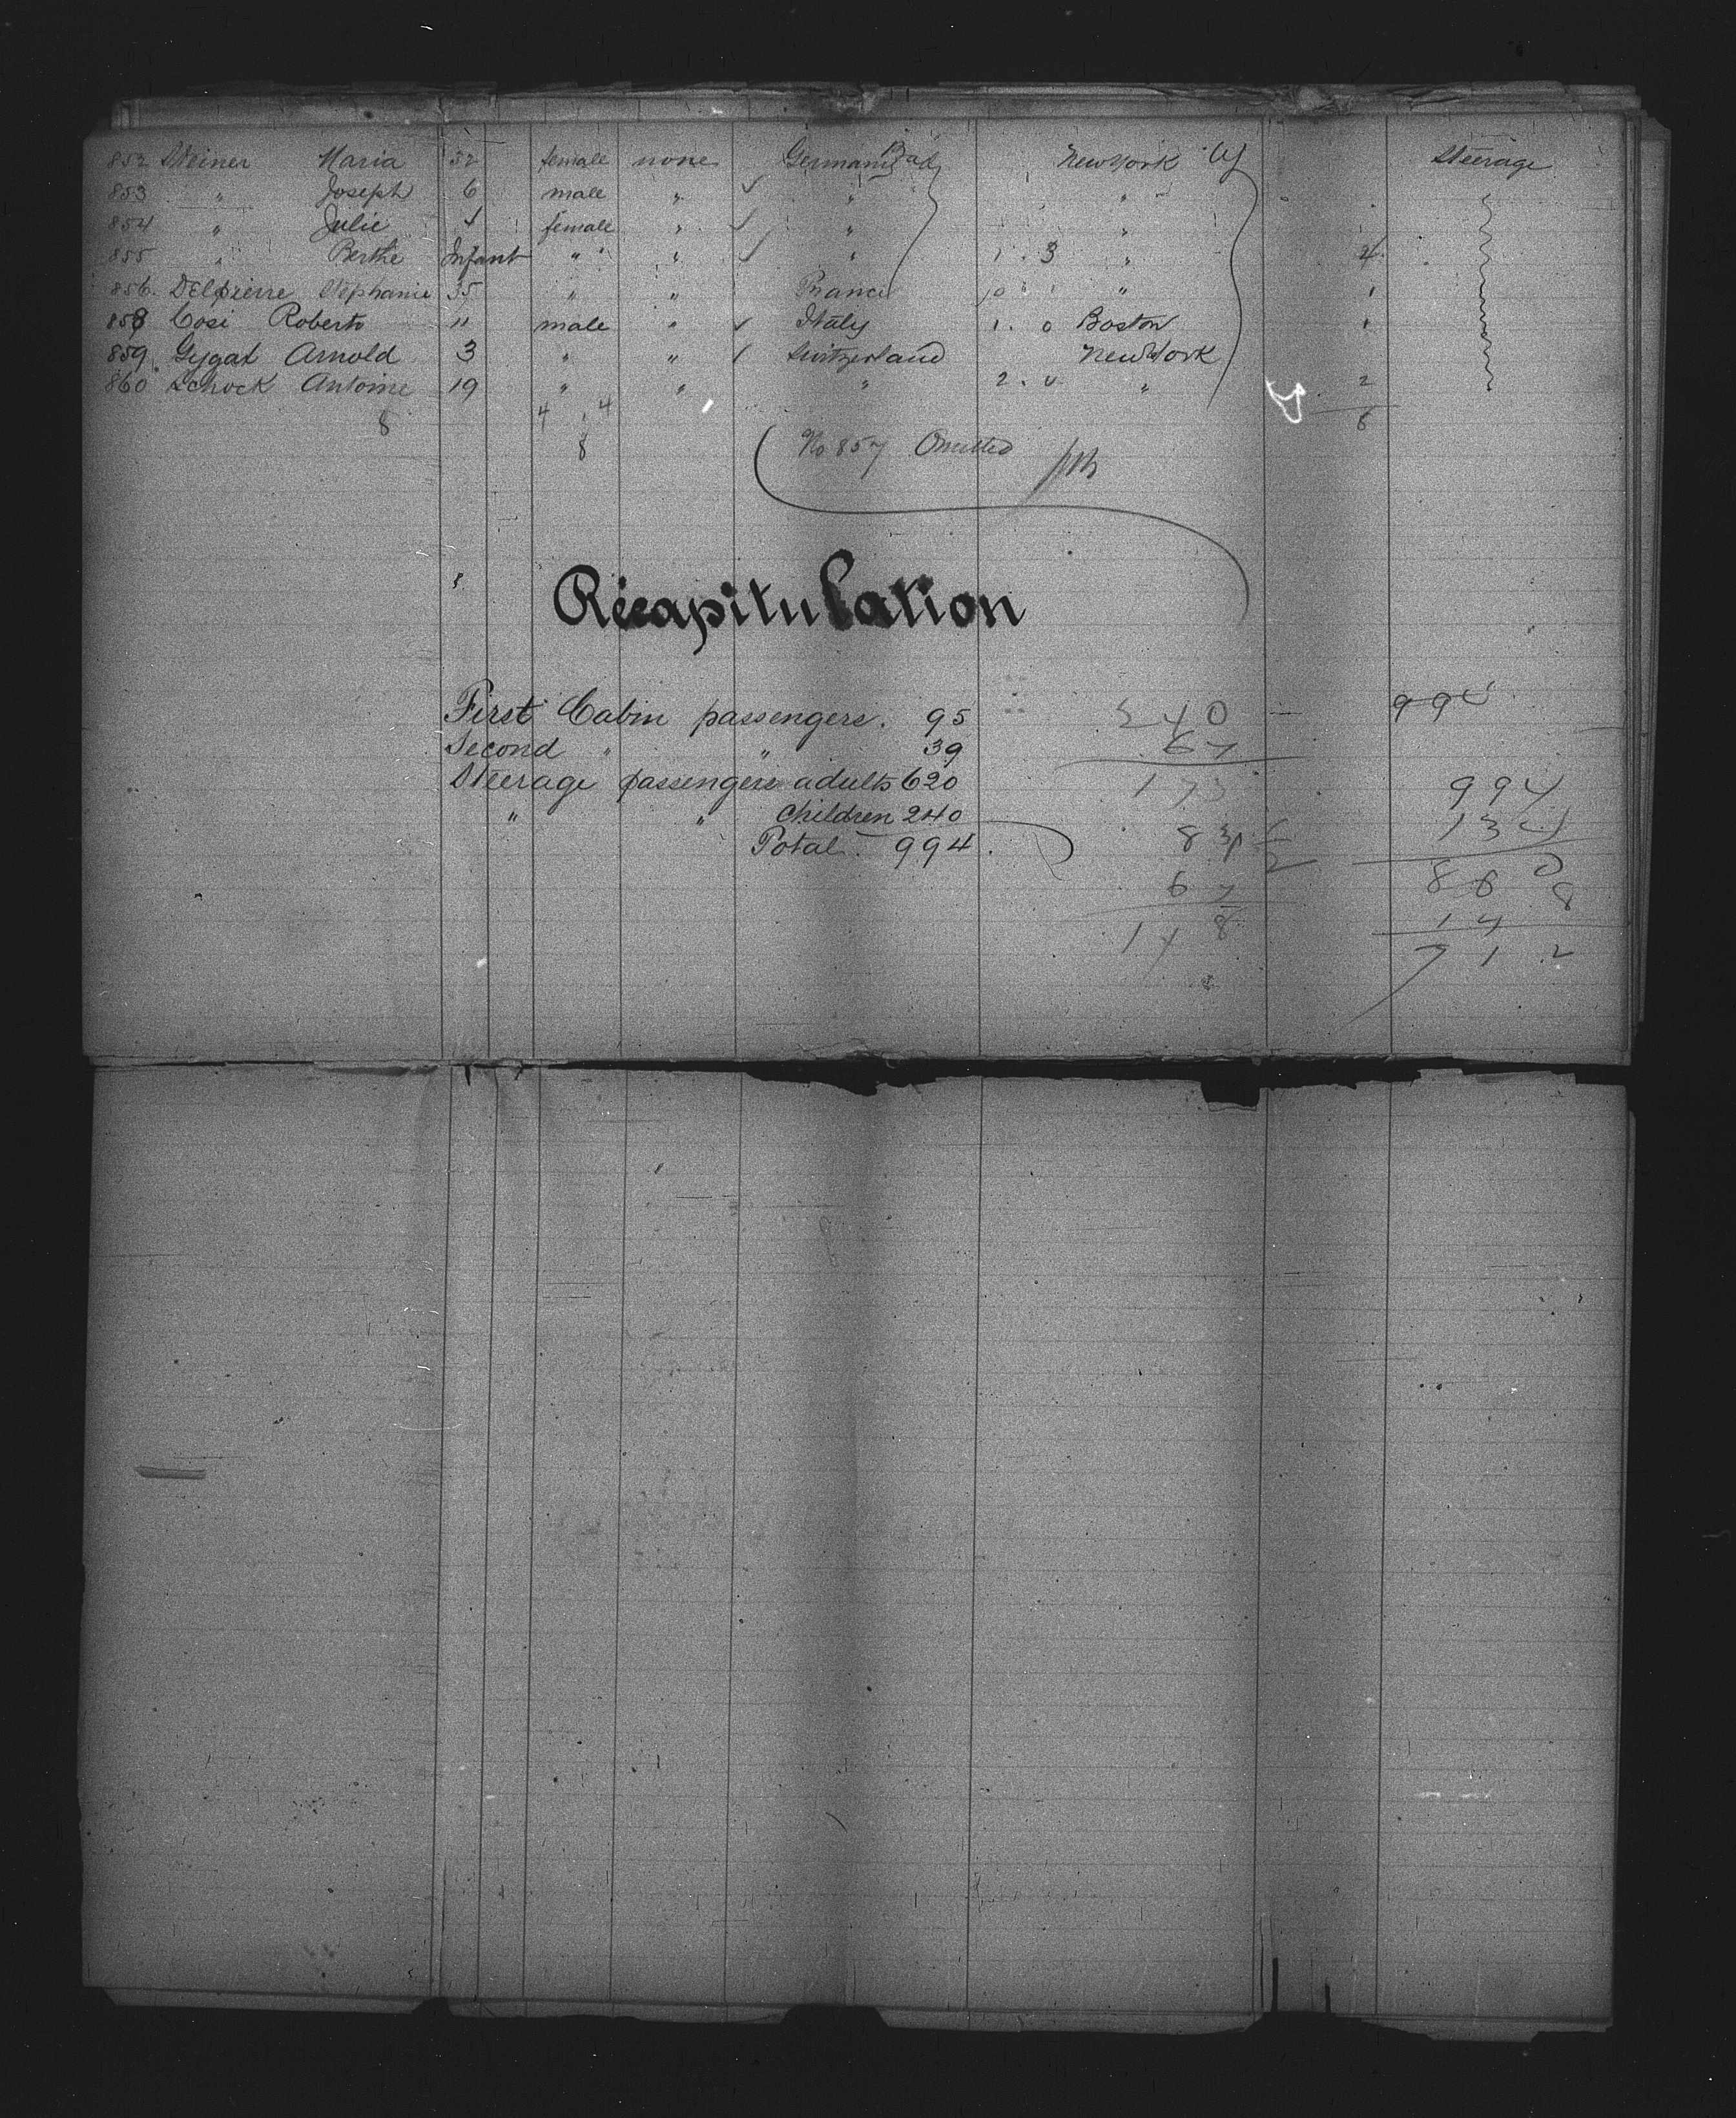 852 Steiner Maria 32 female none Germany Bad New York Cy Steerage
853 " Joseph 6 male " "  "
854 " Julie 4 female " " "
855 " Berthe Infant " " " 1 . 3 " 4
856. Delpierre Stephanie 35 " " France 10 " 1
858 Cosi Roberto 11 male " Italy 1. 0 Boston 1
859. Gygat Arnold 3 " " Switzerland New York
860 Schock Antoine 19 " " " 2 . 0 " 2
8 4 4 8
8 No 857 Omitted
Recapitulation
First Cabin passengers. 95 240 994
Second " " 39 67
Steerage passengers adults 620 173 994
" " children 240 134
Total 994. 83 860
67 8
148
712